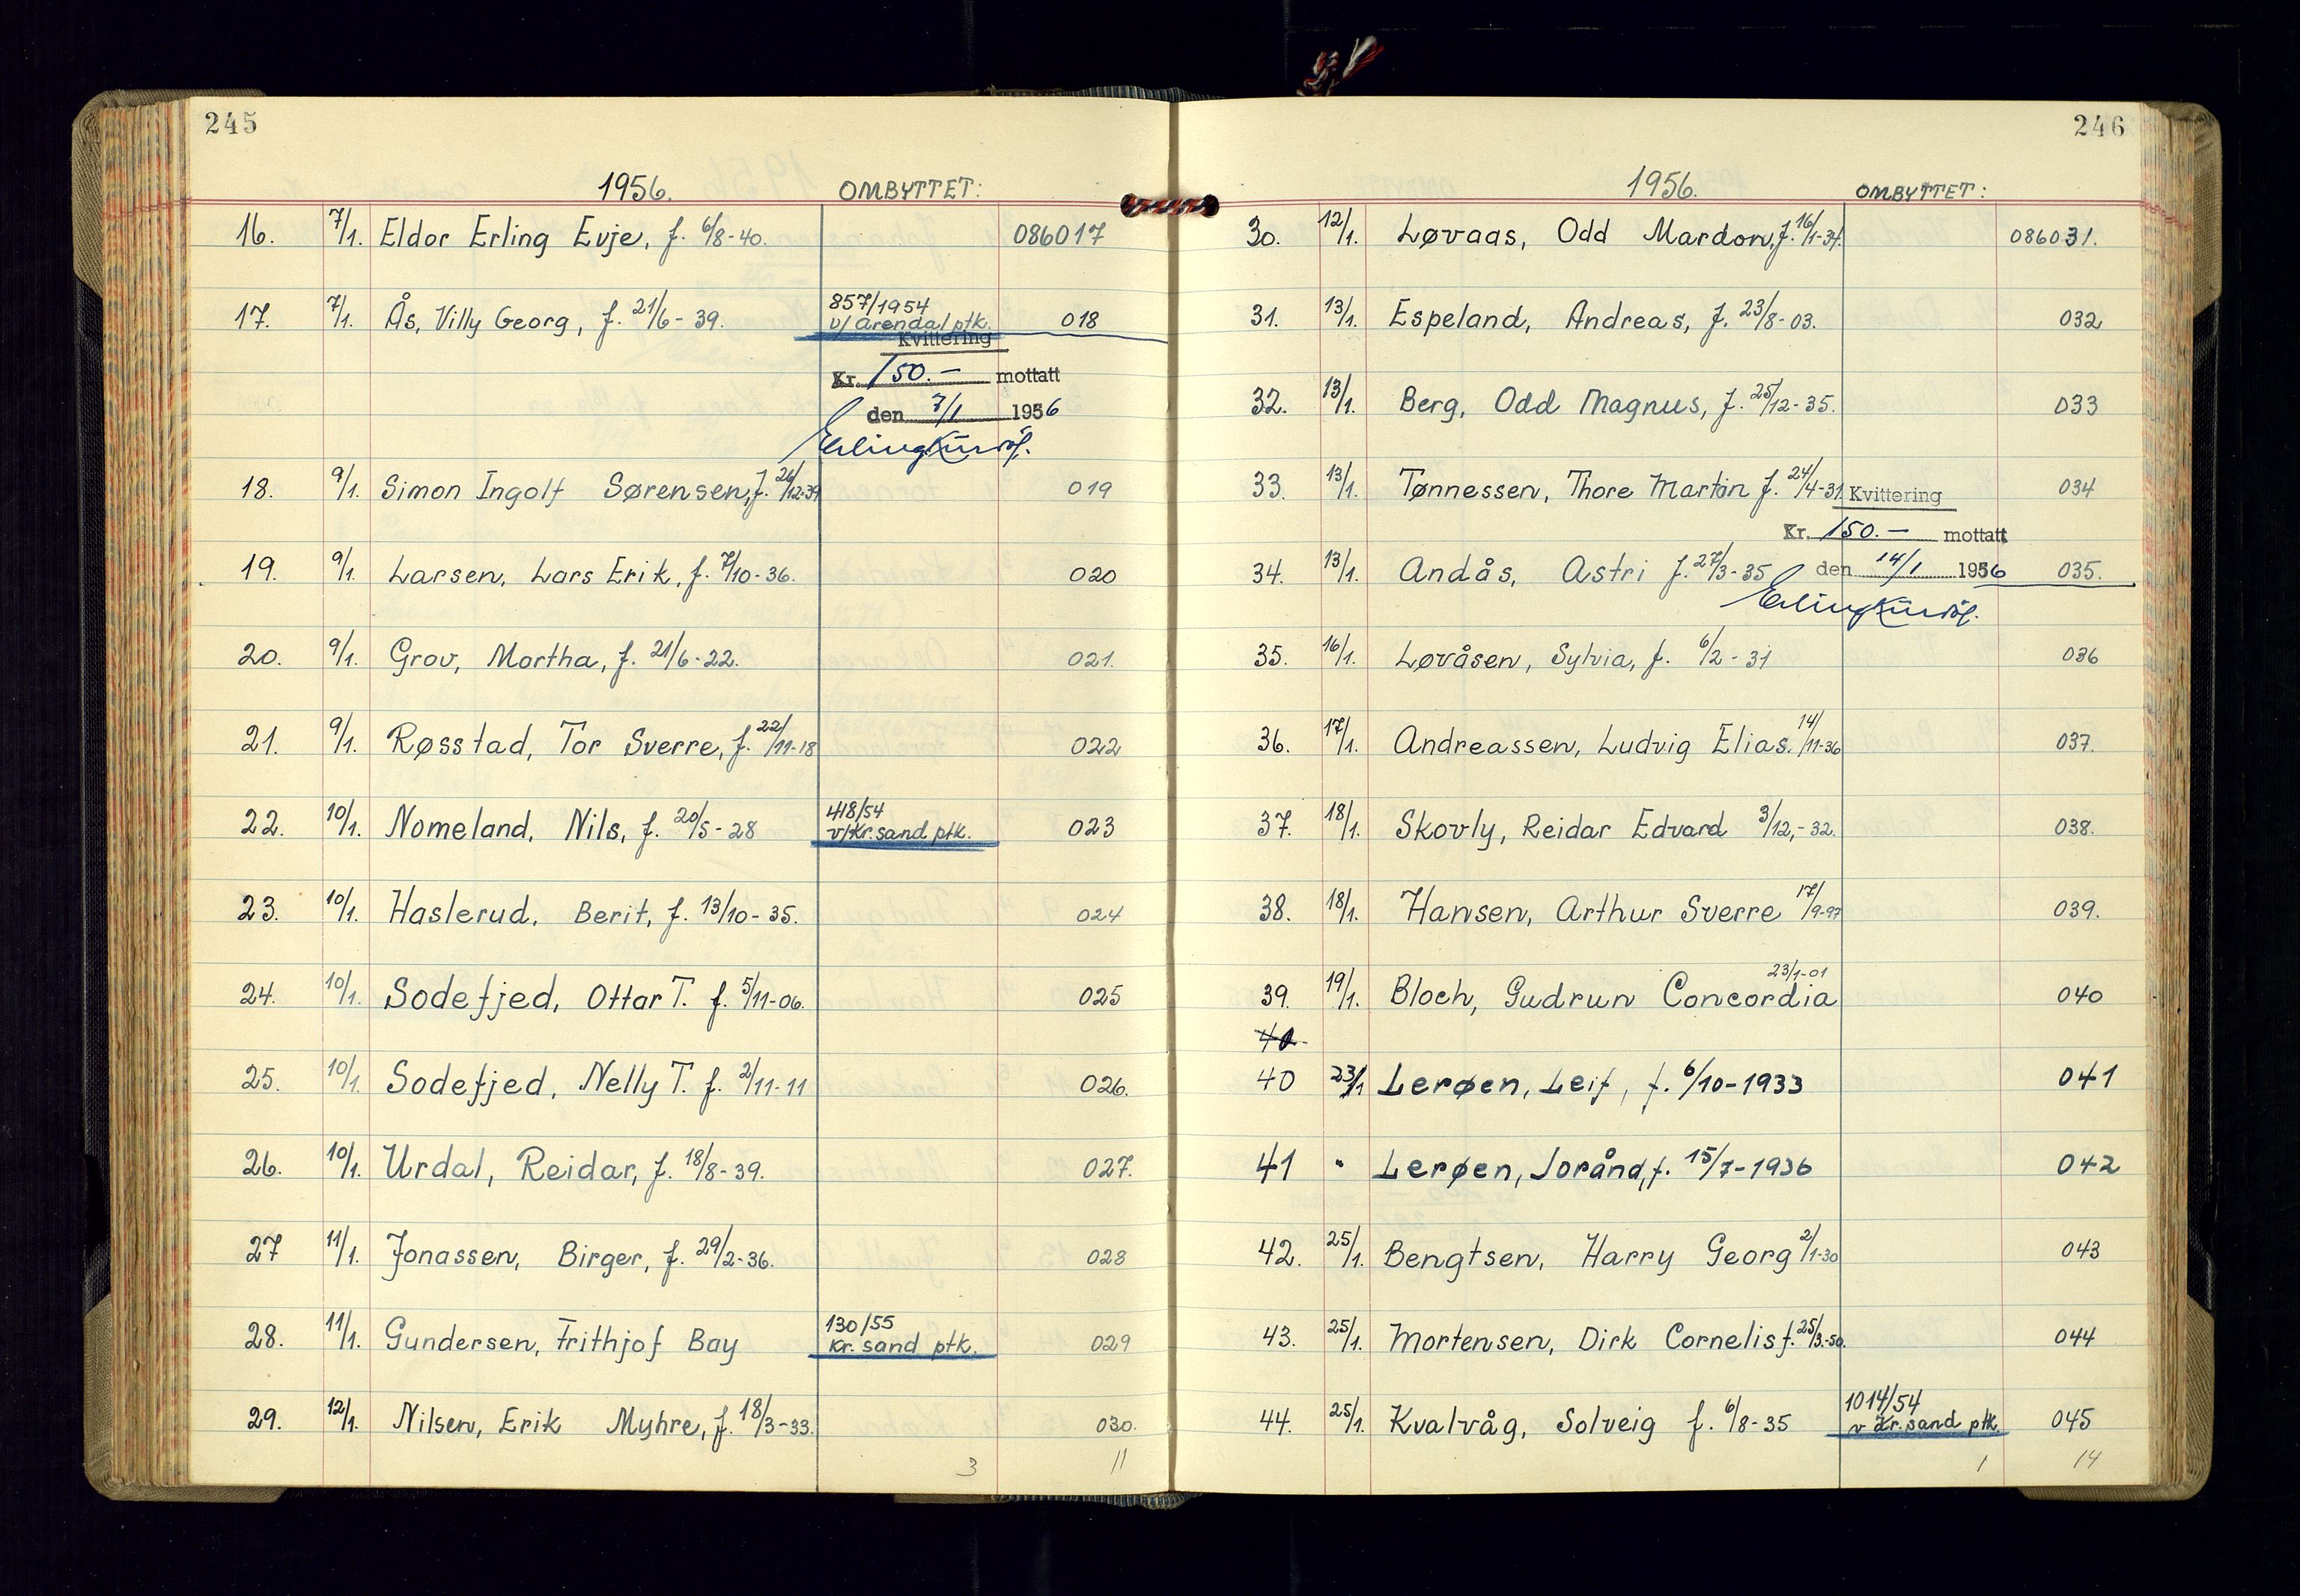 245
1956. OMBYTTET:
16. 7/1. Eldor Erling Evje, f. 6/8-40. 086017
17. 7/1. Ås, Villy Georg, f. 21/6-39. 857/1954 018
v/ Arendal ptk.
Kvittering
Kr. 150.- mottatt
den 7/1 1956
18. 9/1. Simon Ingolf Sørensen, f. 26/12-39 019
19. 9/1. Larsen, Lars Erik, f. 7/10-36. 020
20. 9/1. Grov, Martha, f. 21/6-22. 021.
21. 9/1. Røsstad, Tor Sverre, f. 22/11-18 022
22. 10/1. Nomeland, Nils, f. 20/5-28 418/54 023
v/Kr.sand ptk.
23. 10/1. Haslerud, Berit, f. 13/10-35. 024
24. 10/1. Sodefjed, Ottar T. f. 5/11-06. 025
25. 10/1. Sodefjed, Nelly T. f. 2/11-11 026.
26. 10/1. Urdal, Reidar, f. 18/8-39. 027.
27 11/1. Jonassen, Birger, f. 29/2-36. 028
28. 11/1. Gundersen, Frithjof Bay 130/55 029
Kr.sand ptk.
29. 12/1. Nilsen, Erik Myhre, f. 18/3-33. 030.
3 11
246
1956. OMBYTTET:
30. 12/1. Løvaas, Odd Mardon, f. 16/1-34. 086031.
31. 13/1. Espeland, Andreas, f. 23/8-03. 032
32. 13/1. Berg, Odd Magnus, f. 25/12-35. 033
33. 13/1. Tønnessen, Thore Martin f. 24/4-31 034
Kvittering
Kr. 150.- mottatt
34. 13/1. Andås, Astri f. 27/3-35 den 14/1 1956 035.
35. 16/1. Løvåsen, Sylvia, f. 6/2-31 036
36. 17/1. Andreassen, Ludvig Elias. 14/11-36 037.
37. 18/1. Skovly, Reidar Edvard 3/12,-32. 038.
38. 18/1. Hansen, Arthur Sverre 17/9-97 039.
39. 19/1. Bloch, Gudrun Concordia 23/1-01 040
40.
40 23/1 Lerøen, Leif, f. 6/10-1933 041
41 " Lerøen, Jorånd, f. 15/7-1936 042
42. 25/1. Bengtsen, Harry Georg 2/1-30 043
43. 25/1. Mortensen, Dirk Cornelis f. 25/3.-50. 044
44. 25/1. Kvalvåg, Solveig f. 6/8-35 1014/54 045
v Kr.sand ptk.
1 14